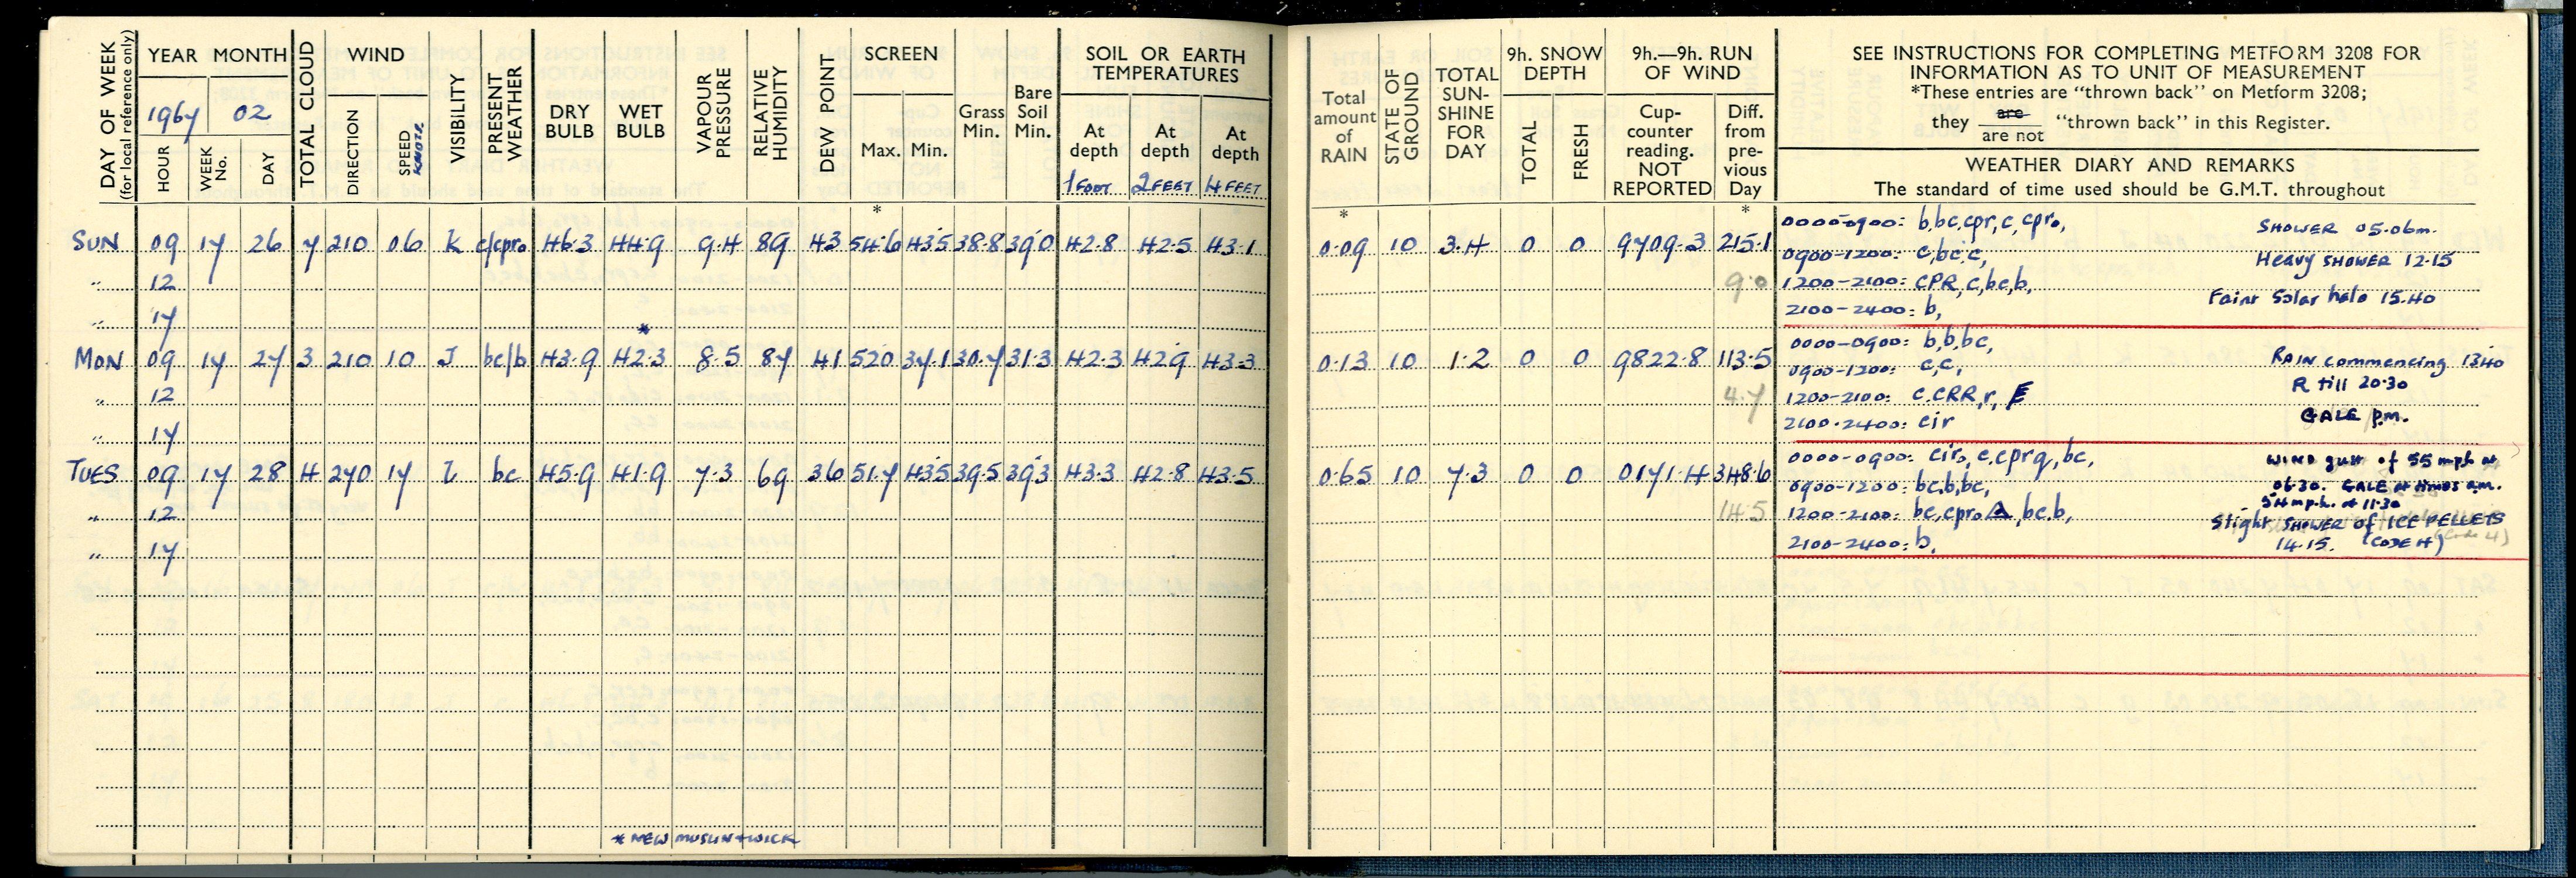 DAY OF WEEK
(for local reference only)
YEAR MONTH
1967 02
HOUR
WEEK No.
DAY
TOTAL CLOUD
WIND
DIRECTION
SPEED KNOTS
VISIBILITY
PRESENT WEATHER
DRY BULB
WET BULB
VAPOUR PRESSURE
RELATIVE HUMIDITY
DEW POINT
SCREEN
Max. Min.
Grass Min.
Bare Soil Min.
SOIL OR EARTH TEMPERATURES
At depth 1 FOOT
At depth 2 FEET
At depth 4 FEET
*
SUN 09 17 26 7 210 06 K c/cpro 46.3 44.9 9.4 89 43 54.6 43.5 38.8 39.0 42.8 42.5 43.1
" 12
" 17
*
MON 09 17 27 3 210 10 J bc/b 43.9 42.3 8.5 87 41 52.0 37.1 30.7 31.3 42.3 42.9 43.3
" 12
" 17
TUES 09 17 28 4 270 17 L bc 45.9 41.9 7.3 69 36 51.7 43.5 39.5 39.3 43.3 42.8 43.5
" 12
" 17
* NEW MUSLIN + WICK
Total amount of RAIN
*
STATE OF GROUND
TOTAL SUN-SHINE FOR DAY
9h. SNOW DEPTH
TOTAL
FRESH
9h.—9h. RUN OF WIND
Cup-counter reading. NOT REPORTED
Diff. from pre-vious Day
*
SEE INSTRUCTIONS FOR COMPLETING METFORM 3208 FOR
INFORMATION AS TO UNIT OF MEASUREMENT
*These entries are "thrown back" on Metform 3208;
they are / are not "thrown back" in this Register.
WEATHER DIARY AND REMARKS
The standard of time used should be G.M.T. throughout
0.09 10 3.4 0 0 9709.3 215.1
9.0
0000-0900: b,bc,cpr,c,cpro,
SHOWER 05.06m.
0900-1200: c,bc,c,
Heavy SHOWER 12.15
1200-2100: CPR,c,bc,b,
Faint Solar halo 15.40
2100-2400: b,
0.13 10 1.2 0 0 9822.8 113.5
4.7
0000-0900: b,b,bc,
RAIN commencing 1340
0900-1200: c,c,
R till 20.30
1200-2100: c.CRR,r,
GALE p.m.
2100-2400: cir
0.65 10 7.3 0 0 0171.4 348.6
14.5
0000-0900: ciro,c,cprq,bc,
WIND gust of 55 mph at
06.30. GALE at times a.m.
0900-1200: bc,b,bc,
54 m.p.h. at 11.30
1200-2100: bc,cpro,bc,b,
Slight SHOWER of ICE PELLETS
2100-2400: b.
14.15. (CODE 4)
(Code 4)